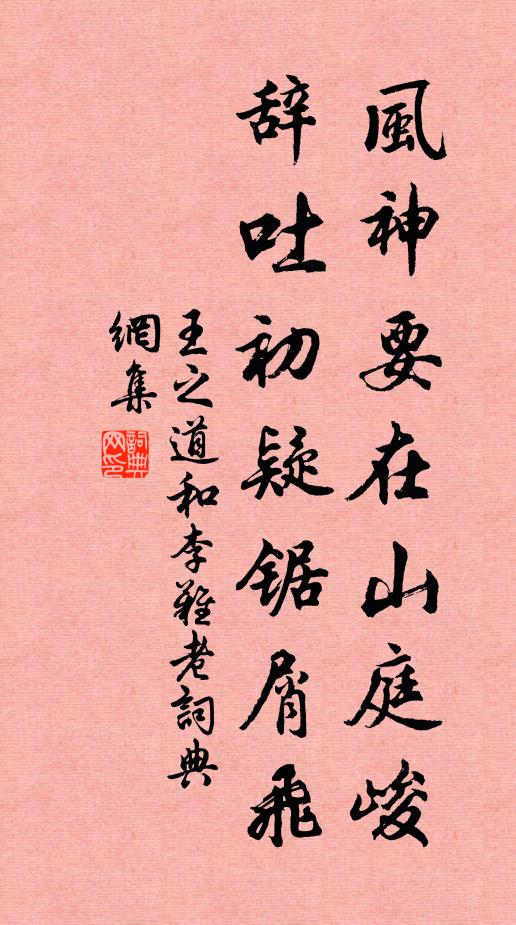 風神要在山庭峻
辞吐初疑锯屑飛
王之道和李難老詞典
網集
詞典網印